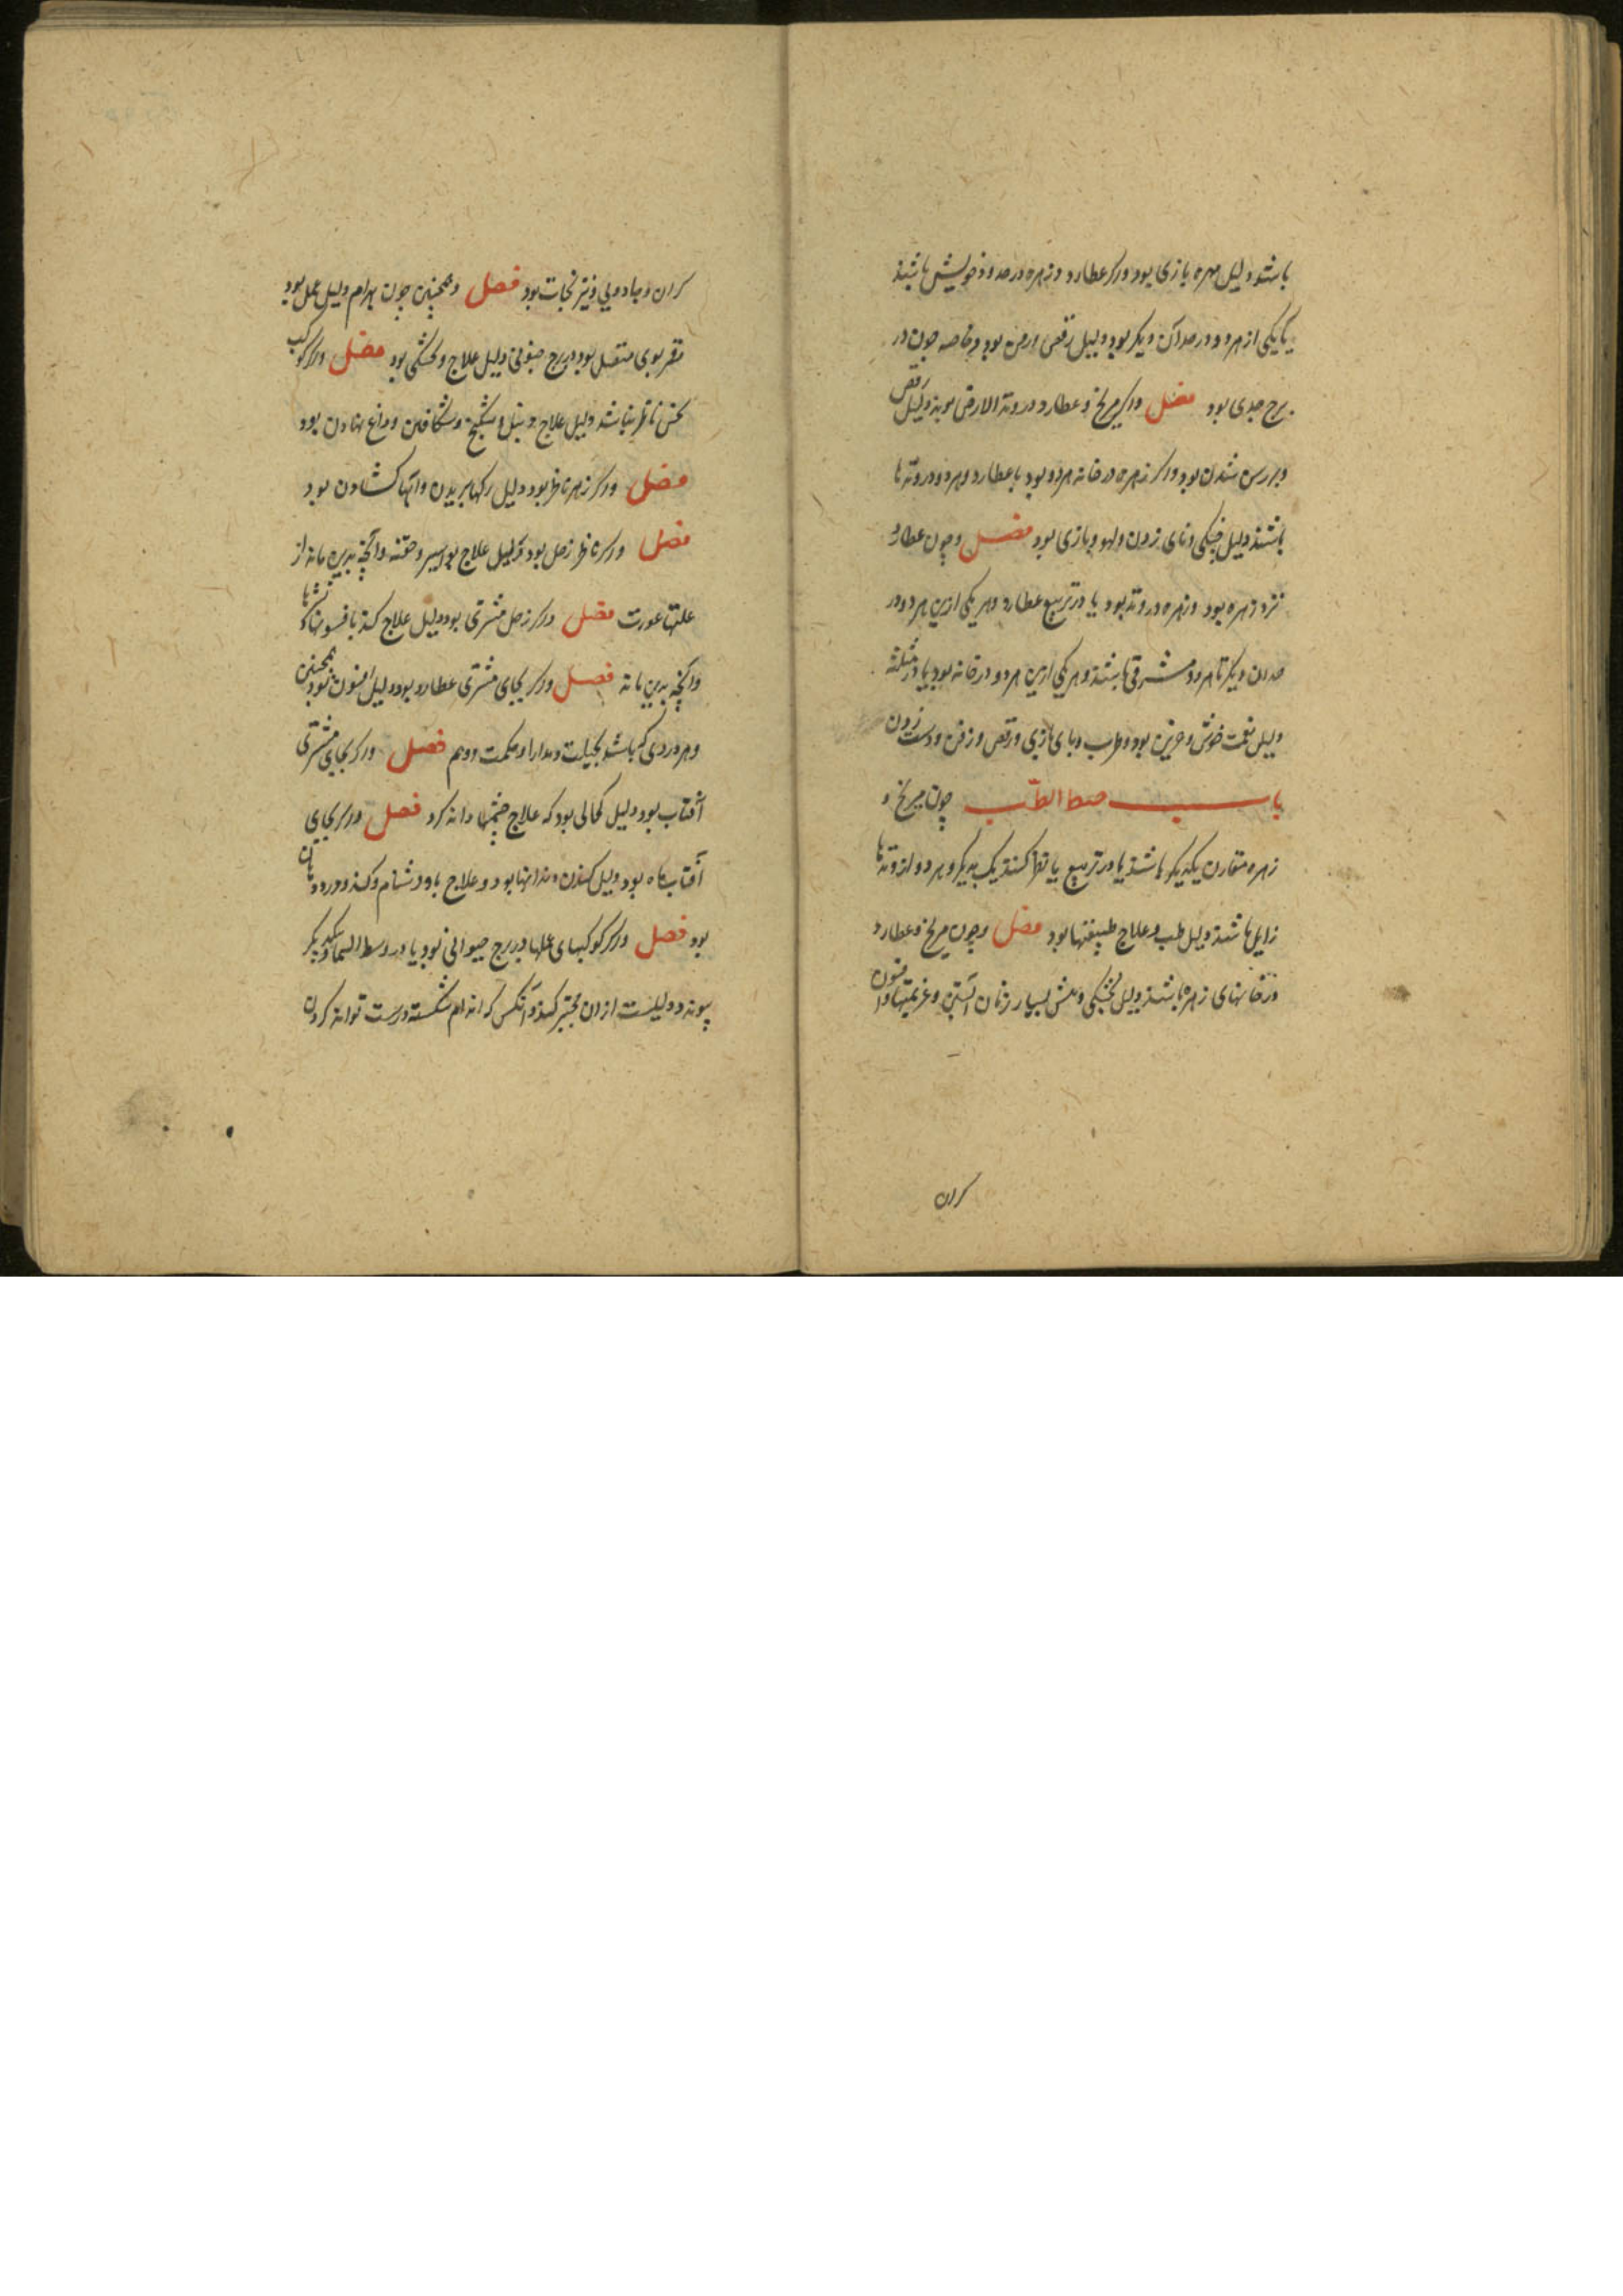 باشد دلیل مهره بازی بود واکر عطارد و زهره در حدود خویش باشند
یا یکی از هر دو در حد آن دیکر بود دلیل رقص بود و خاصه چون در
برج جدی بود فصل واکر مریخ و عطارد در وتد الارض بوند دلیل رقص
شدن بود واکر زهره در خانه هر دو بود با عطارد و هر دو در وتدها
باشند دلیل چنکی و نای زدن و لهو و بازی بود فصل و چون عطارد
نزد زهره بود و زهره در وتد بود یا در تربیع عطارد و هر یکی ازین هر دو در
حد آن دیکر تا هر دو مشرقی باشند و هر یکی ازین هر دو در خانه بود یا در مثلثه
دلیل نغمت خوش و حزین بود و طرب و پای بازی و رقص و زفن و دست زدن
باب الطب چون مریخ و
زهره مقارن یکدیکر باشند یا در تربیع یا نظر کنند یک بدیکر و هر دو از وتدها
زایل باشند دلیل طب و علاج بود فصل و چون مریخ و عطارد
در خانهای زهره باشند دلیل بسیار زنان آبستن و عزیمتها و افسون
کران
کران و جادویی و نیرنجات بود فصل و همچنین چون بهرام دلیل عمل بود
قمر بوی متصل بود در برج دلیل علاج بود فصل واکر کوکب
نحس ناظر نباشد دلیل علاج و شکافتن و داغ نهادن بود
فصل واکر زهره ناظر بود دلیل رکها بریدن و کشادن بود
فصل واکر ناظر زحل بود دلیل علاج بواسیر و حقنه وآنچه بدین ماند از
علتها عورت فصل واکر زحل مشرقی بود دلیل علاج کند بافسونها
وآنچه بدین ماند فصل واکر بجای مشتری عطارد بود دلیل افسون بود همچنین
و هر دردی که باشد بحیلت و مدارا و حکمت فصل واکر بجای مشتری
آفتاب بود دلیل کحالی بود که علاج چشمها داند کرد فصل واکر بجای
آفتاب ماه بود دلیل کندن دندانها بود و علاج باد
بود فصل واکر کوکبهای عملها در برج حیوانی بود یا در وسط السما و یکدیکر
پیوندد دلیلست از آن مجبر کند وآنکس که اندام شکسته درست تواند کردن